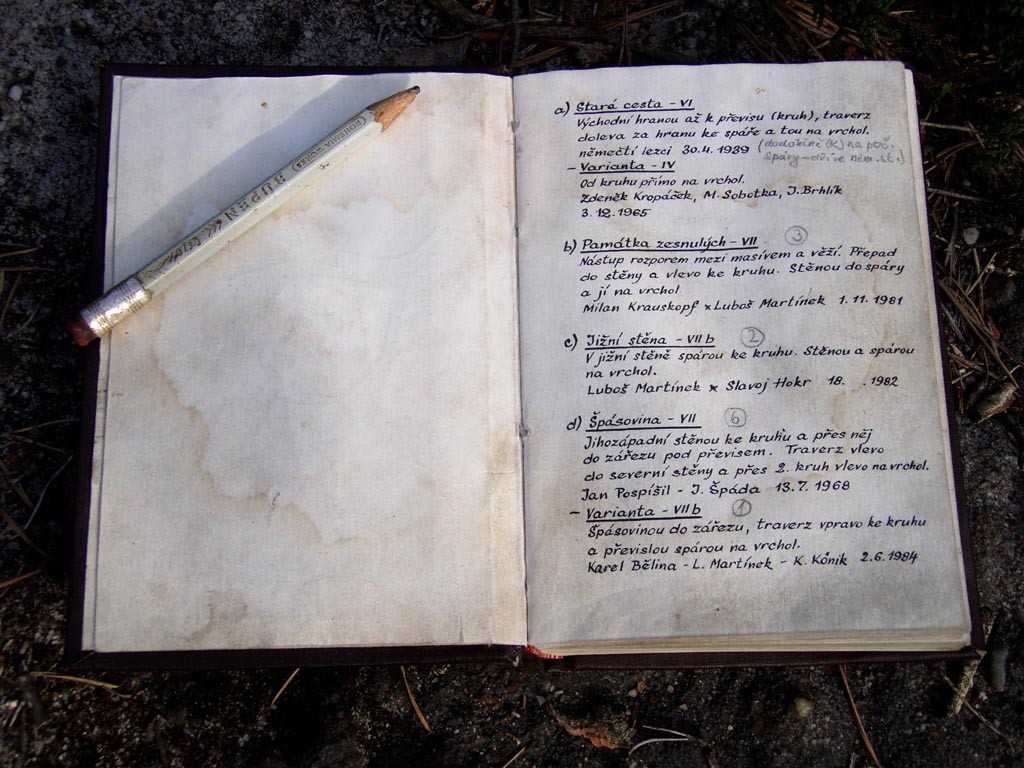 BOHEMIA WORKS
SUPER
a) Stará cesta - VI
Východní hranou až k převisu (kruh), traverz
doleva za hranu ke spáře a tou na vrchol.
němečtí lezci 30.4.1939 (dodatečně (K) na poč.
spáry - dříve
- Varianta - IV
Od kruhu přímo na vrchol.
Zdeněk Kropáček, M. Sobotka, J. Brhlík
3.12.1965
b) Památka zesnulých - VII 3
Nástup rozporem mezi masívem a věží. Přepad
do stěny a vlevo ke kruhu. Stěnou do spáry
a jí na vrchol
Milan Krauskopf x Luboš Martínek 1.11.1981
c) Jižní stěna - VII b 2
V jižní stěně spárou ke kruhu. Stěnou a spárou
na vrchol.
Luboš Martínek x Slavoj Hokr 18. .1982
d) Špásovina - VII 6
Jihozápadní stěnou ke kruhu a přes něj
do zářezu pod převisem. Traverz vlevo
do severní stěny a přes 2. kruh vlevo na vrchol.
Jan Pospíšil - J. Špáda 13.7.1968
- Varianta - VII b 1
Špásovinou do zářezu, traverz vpravo ke kruhu
a převislou spárou na vrchol.
Karel Bělina - L. Martínek - K. Koník 2.6.1984